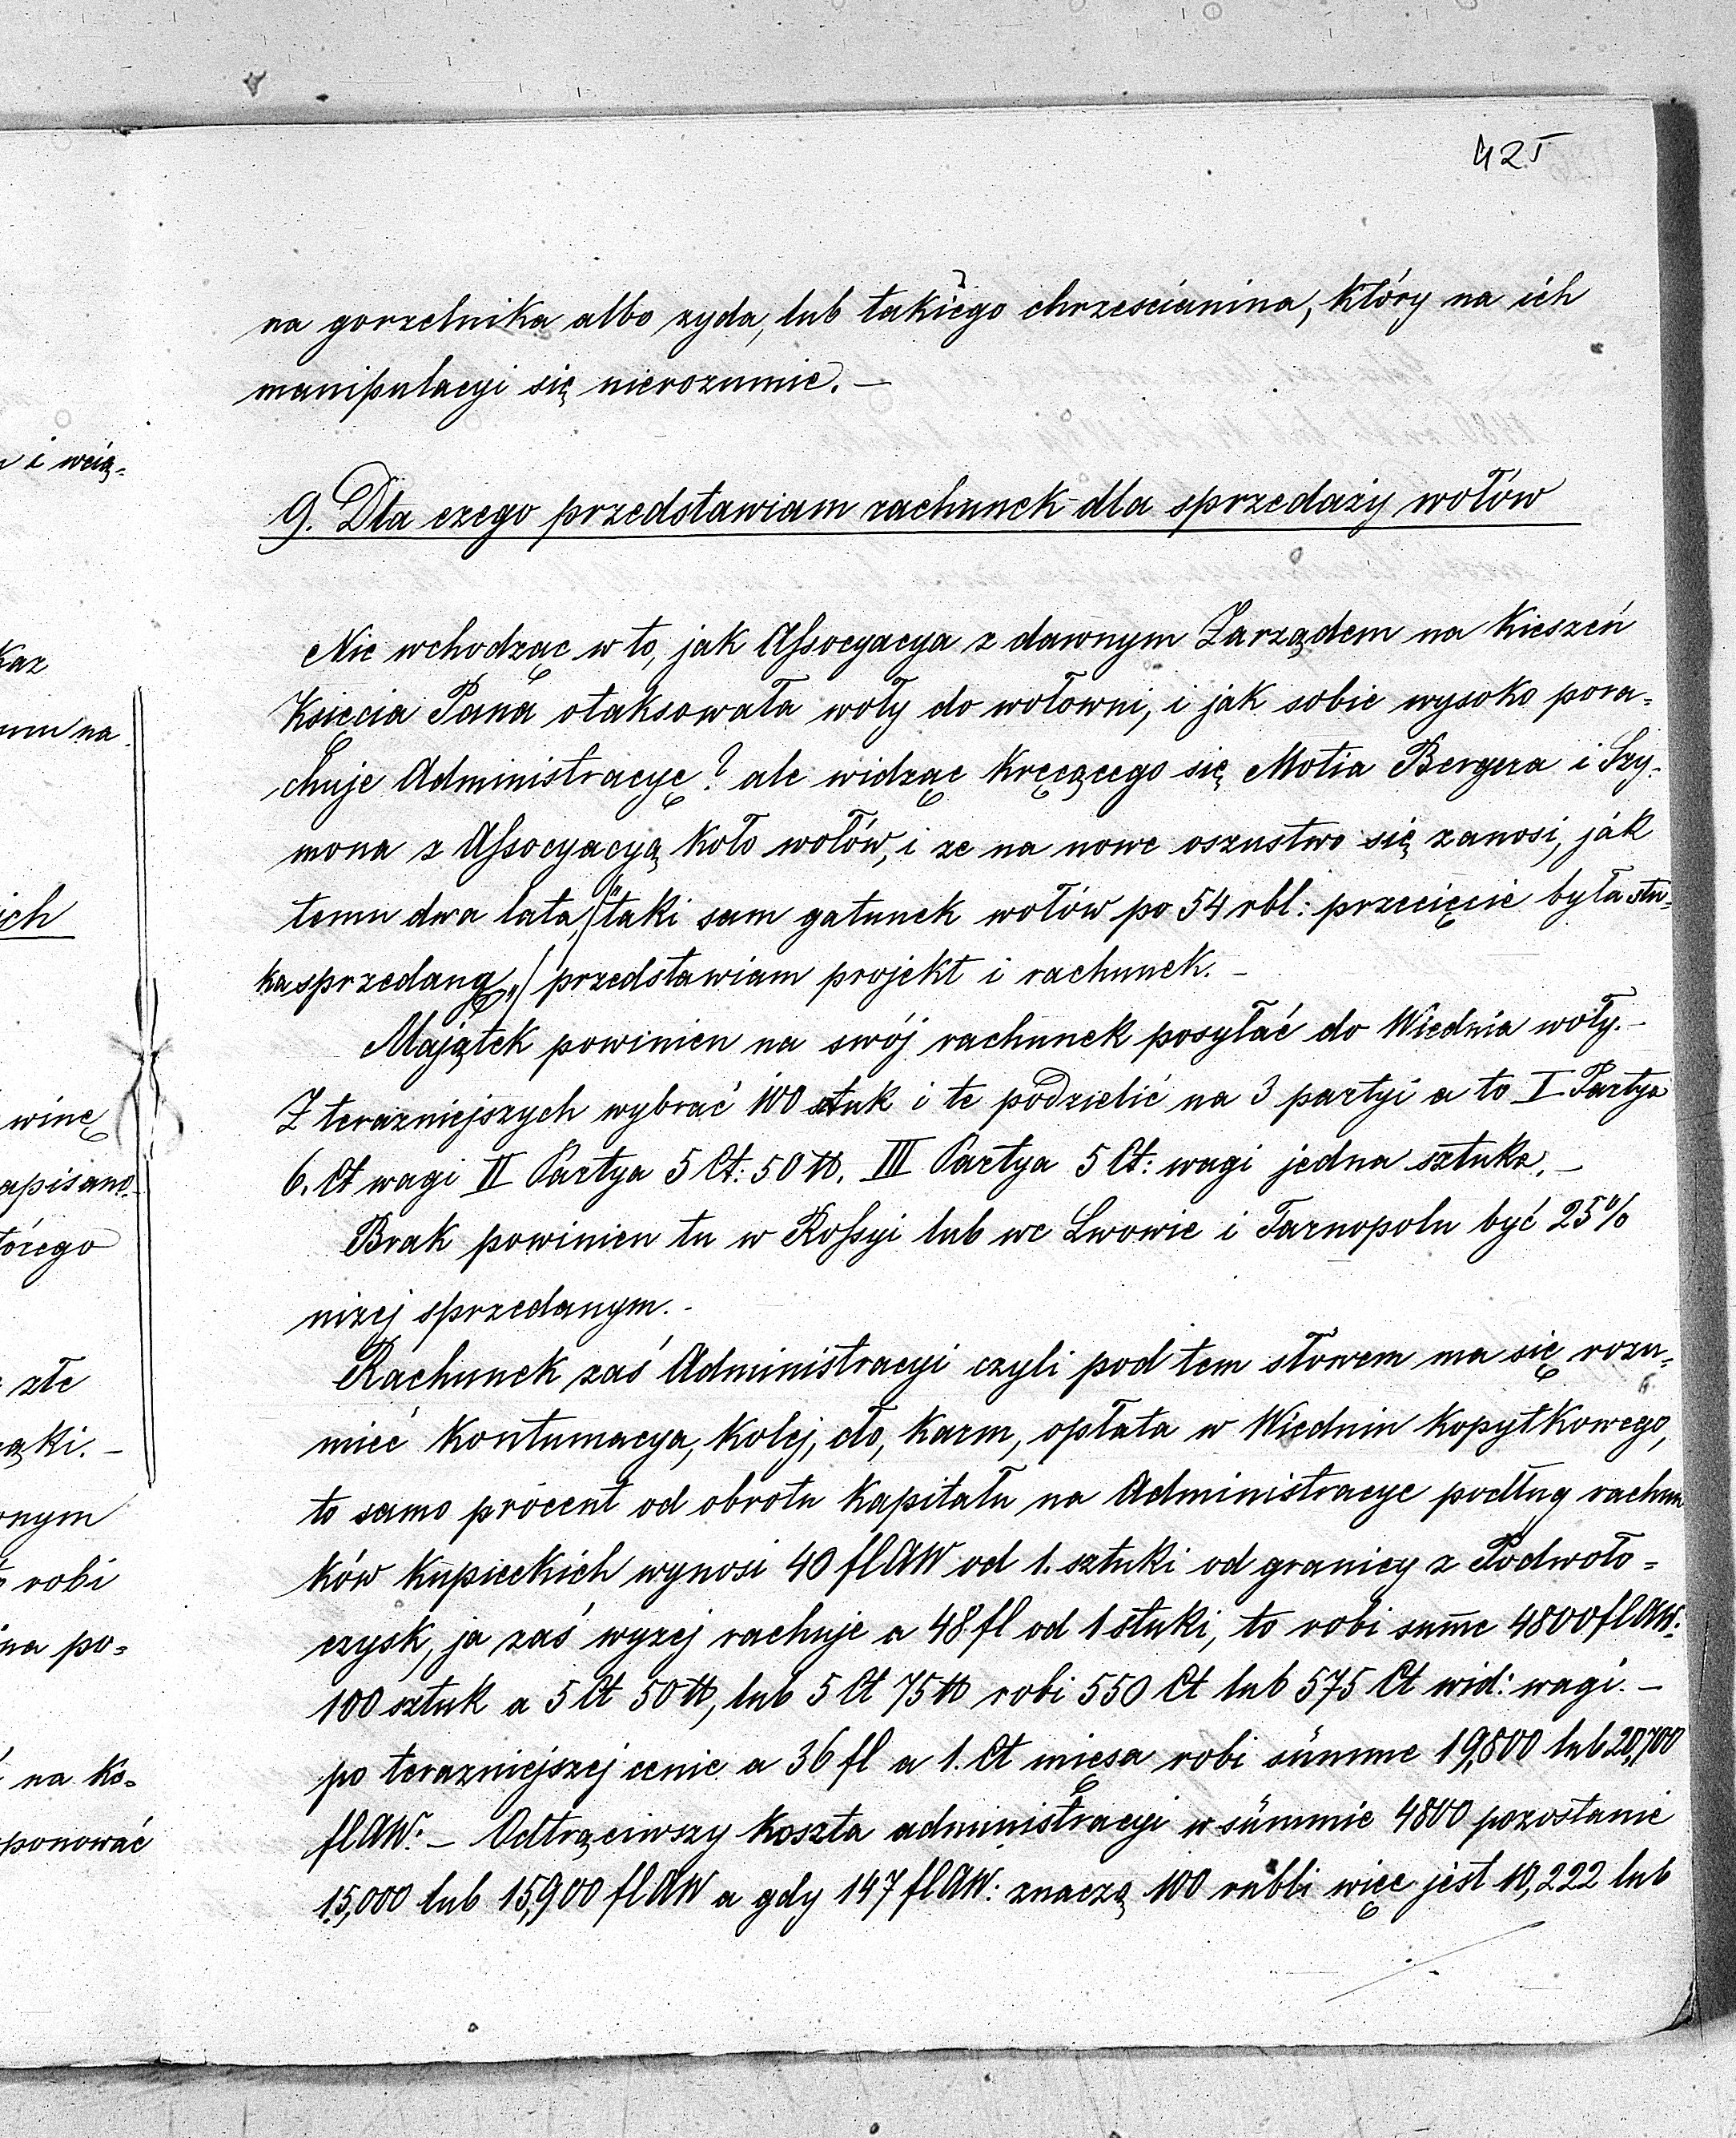 425
na gorzelnika albo zyda, lub takiego chrzescianina, który na ich
manipulacyi się nierozumie. —
9. Dla czego przedstawiam rachunek dla sprzedaży wołów
Nie wchodząc w to, jak Assocyacya z dawnym Zarządem na Kieszeń
Księcia Pana otaksowała woły do wołowni, i jak sobie wysoko pora=
chuje Administracyę? ale widząc kręcącego się Motia Bergera i Szy=
mona z Assocyacyą koło wołów, i ze na nowe oszustwo się zanosi, jak
temu dwa lata, (" taki sam gatunek wołów po 54 rbl: przecięcie była stu=
ka sprzedaną,") przedstawiam projekt i rachunek. —
Majątek powinien na swój rachunek posyłać do Wiednia woły. —
Z terazniejszych wybrać 100 sztuk i te podzielić na 3 partyi a to I Partya
6. Ct wagi II Partya 5 Ct: 50 ℔. III Partya 5 Ct: wagi jedna sztuka. —
Brak powinien tu w Rossyi lub we Lwowie i Tarnopolu być 25%
nizej sprzedanym. -
Rachunek zaś Administracyi czyli pod tem słowem ma się rozu=
mieć Kontumacya, Kolej, cło, Karm, opłata w Wiedniu Kopytkowego,
to samo procent od obrotu Kapitału na Administracye podług rachun
ków Kupieckich wynosi 40 flAW od 1. sztuki od granicy z Podwoło=
czysk, ja zaś wyzej rachuje a 48 fl od 1 stuki, to robi sum̄e 4800 flAW:
100 sztuk a 5 Ct 50 ℔, lub 5 Ct 75 ℔ robi 550 Ct lub 575 Ct wid: wagi. —
po terazniejszej cenie a 36 fl a 1. Ct mięsa robi summe 19,800 lub 20,700
flAW: — Odtrąciwszy koszta administracyi w summie 4800 pozostanie
15,000 lub 15,900 flAW a gdy 147 flAW: znaczą 100 rubli więc jest 10,222 lub
n i wcią=
Kaz
na
ich
winę
apisano.
tórego
złe
ązki. —
onym
robi
na po=
na ko=
ponować